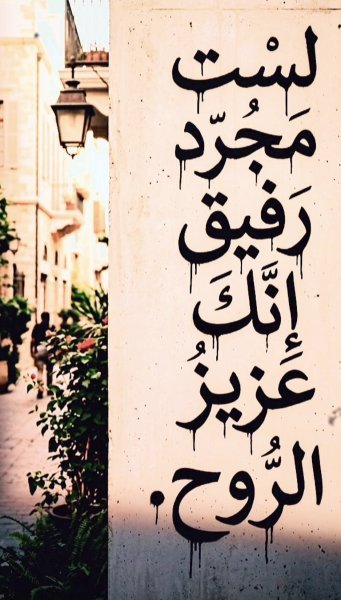 لسْت
مَجُرّد
رَفيق
إنَّكَ
عَزيزُ
الرُّوح.